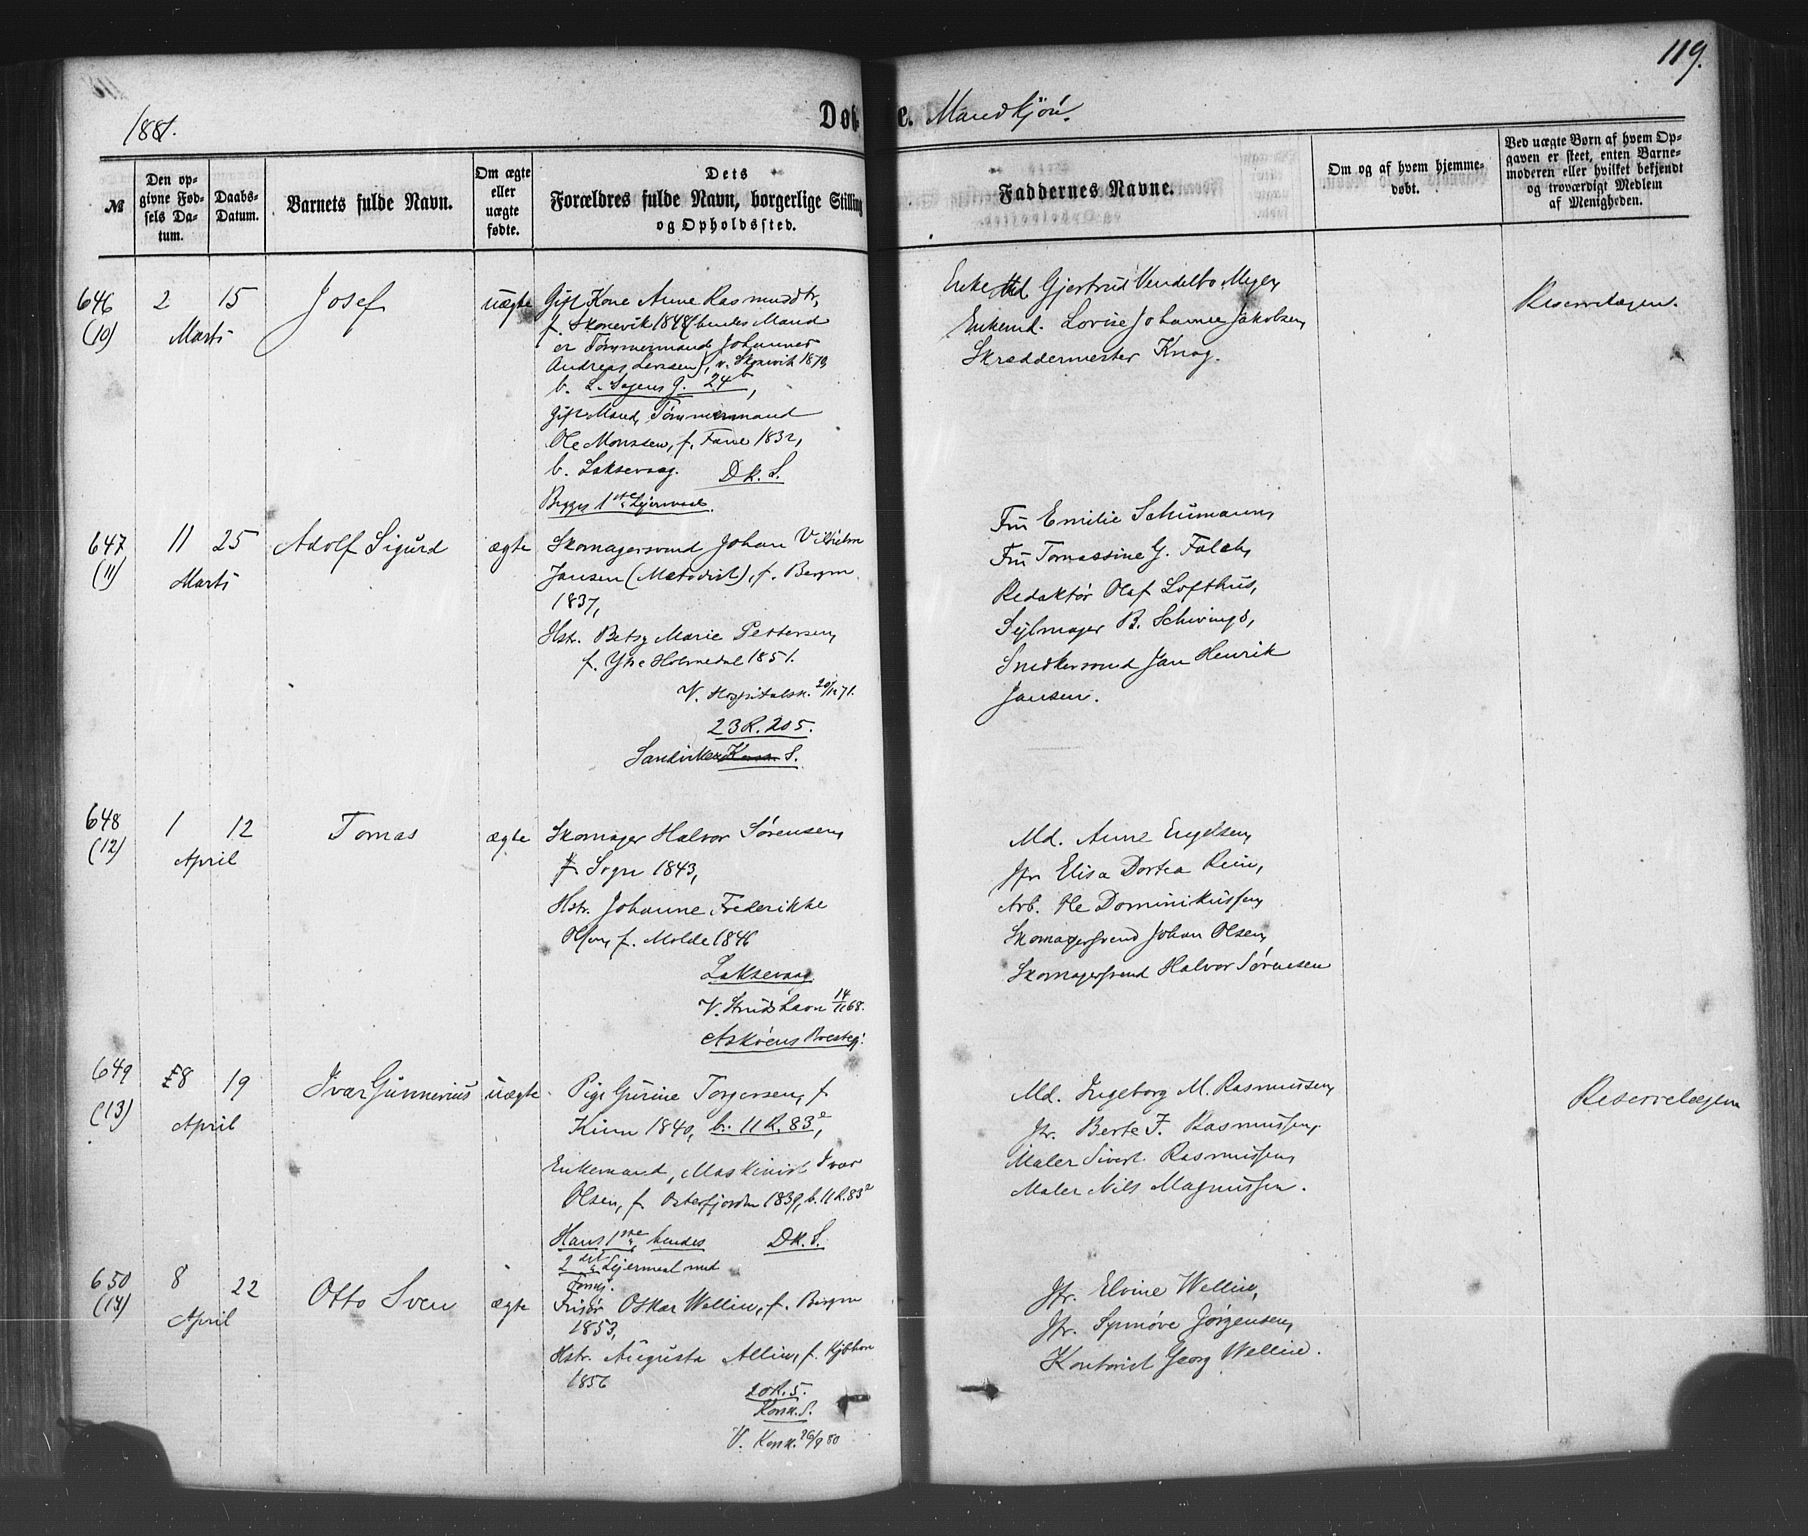 119.
1881.
Døbte. Mandkjön.
№
Den opgivne Fødsels Datum.
Daabs-Datum.
Barnets fulde Navn.
Om ægte eller uægte fødte.
Dets Forældres fulde Navn, borgerlige Stilling og Opholdssted.
Faddernes Navne.
Om og af hvem hjemmedøbt.
Ved uægte Børn af hvem Opgaven er skeet, enten Barnemoderen eller hvilket bekjendt og troværdigt Medlem af Menigheden.
646
(10)
2 15
Marts
Josef
uægte
Gift Kone Anne Rasmusdtr,
f. Skonevik 1848 (hendes Mand
er Tømmermand Johannes
Andreas Larssen), v. Skonevik 1870,
b. L. Sagens G. 24 b,
Gift Mand, Tømmermand
Ole Monssen, f. Fane 1832,
b. Laksevaag. Dk. S.
Begges 1ste Lejermaal.
Enke Md Gjertrud Vendelbo Meyer,
Enkemd. Lovise Johanne Jakobsen,
Skræddermester Knag.
Reservelægen.
647
(11)
11 25
Marts
Adolf Sigurd
ægte
Skomagersvend Johan Vilhelm
Jansen (Metodist), f. Bergen
1837,
Hstr. Betsy Marie Pettersen,
f. Ytre Holmedal 1851.
V. Hospitalsk. 20/12 71.
23 R. 205.
Sandviken S.
Fru Emilie Schumann,
Fru Tomassine G. Falch,
Redaktør Olaf Lofthus,
Sejlmager B. Schwings,
Snedkersvend Jan Henrik
Jansen.
648
(12)
1 12
April
Tomas
ægte
Skomager Halvor Sørensen,
f. Sogn 1843,
Hstr. Johanne Frederikke
Olsen, f. Molde 1846
Laksevaag
V. Strudshavn 14/11 68.
Askøens Prestegj.
Md. Anne Engelsen,
Jfr Elisa Dortea Rein,
Arb. Ole Dominikussen,
Skomagersvend Johan Olsen,
Skomagersvend Halvor Sørensen
649
(13)
8 19
April
Ivar Gunnerius
uægte
Pige Gurine Torgersen, f.
Kinn 1840, b. 11 R. 83²,
Enkemand, Maskinist Ivar
Olsen, f. Osterfjorden 1839, b. 11 R. 83²
Hans 1ste, hendes Dk. S.
2det Lejermaal med
Forskj.
Md. Ingeborg M. Rasmussen,
Jfr. Berte F. Rasmussen,
Maler Sivert Rasmussen,
Maler Nils Magnussen.
Reservelægen
650
(14)
8 22
April
Otto Sven
ægte
Frisør Oskar Wellin, f. Bergen
1853,
Hstr. Augusta Allin, f. Kjøbhvn
1856
20 R. 5.
Korsk. S.
V. Korsk. 26/9 80
Jfr. Elvine Wellin,
Jfr. Synnøve Jørgensen,
Kontorist Georg Wellin.